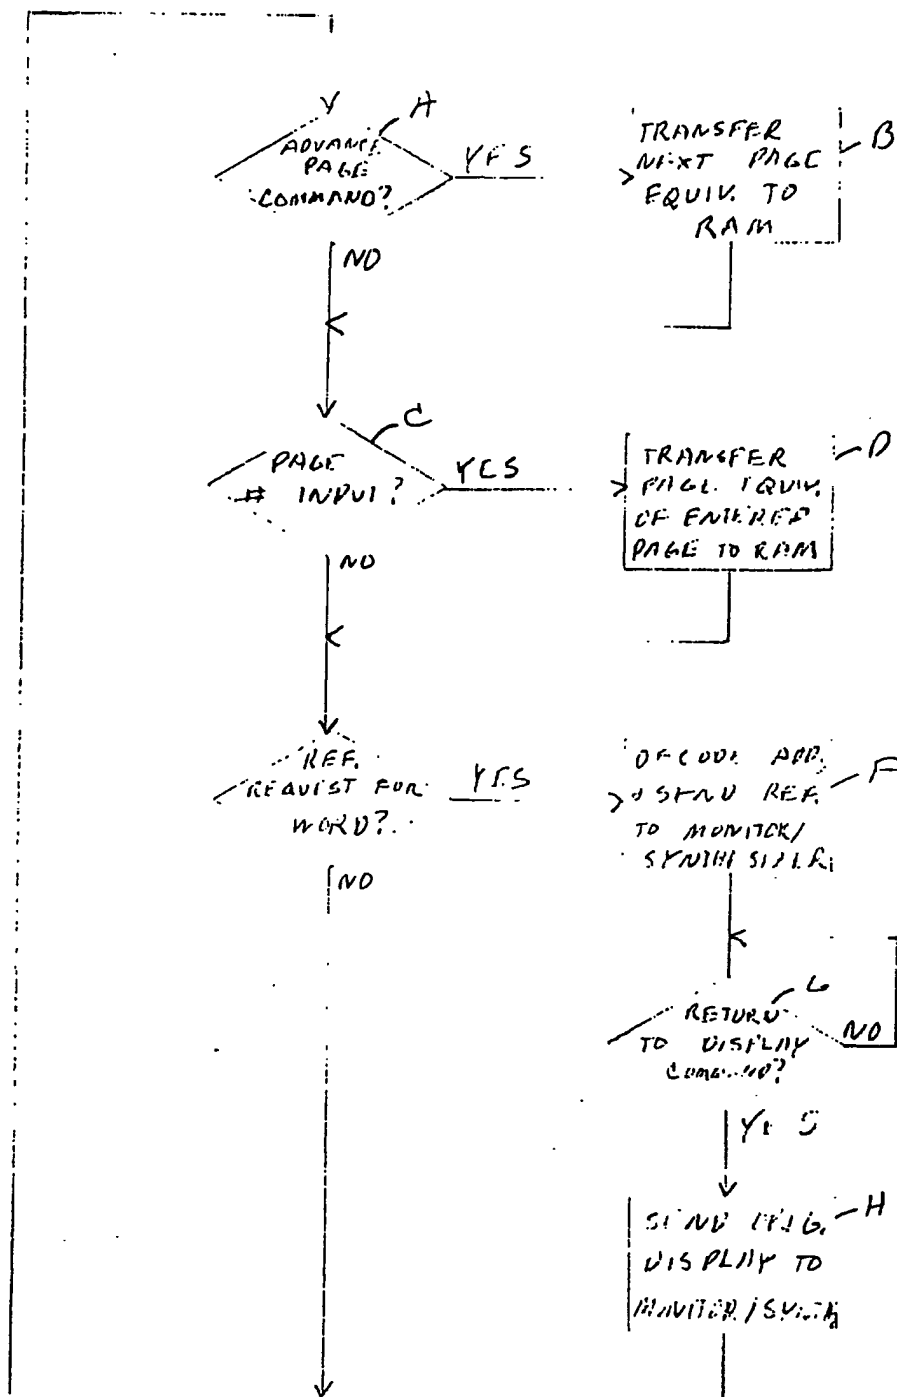 A
ADVANCE
PAGE
COMMAND?
YES
TRANSFER
NEXT PAGE
EQUIV. TO
RAM
B
NO
C
PAGE
# INPUT?
YES
TRANSFER
PAGE EQUIV.
OF ENTERED
PAGE TO RAM
D
NO
REF.
REQUEST FOR
WORD?
YES
DECODE ADD.
& SEND REF.
TO MONITOR/
SYNTHESIZER
F
NO
RETURN
TO DISPLAY
COMMAND?
NO
YES
SEND
DISPLAY TO
MONITOR/SYNTH
H